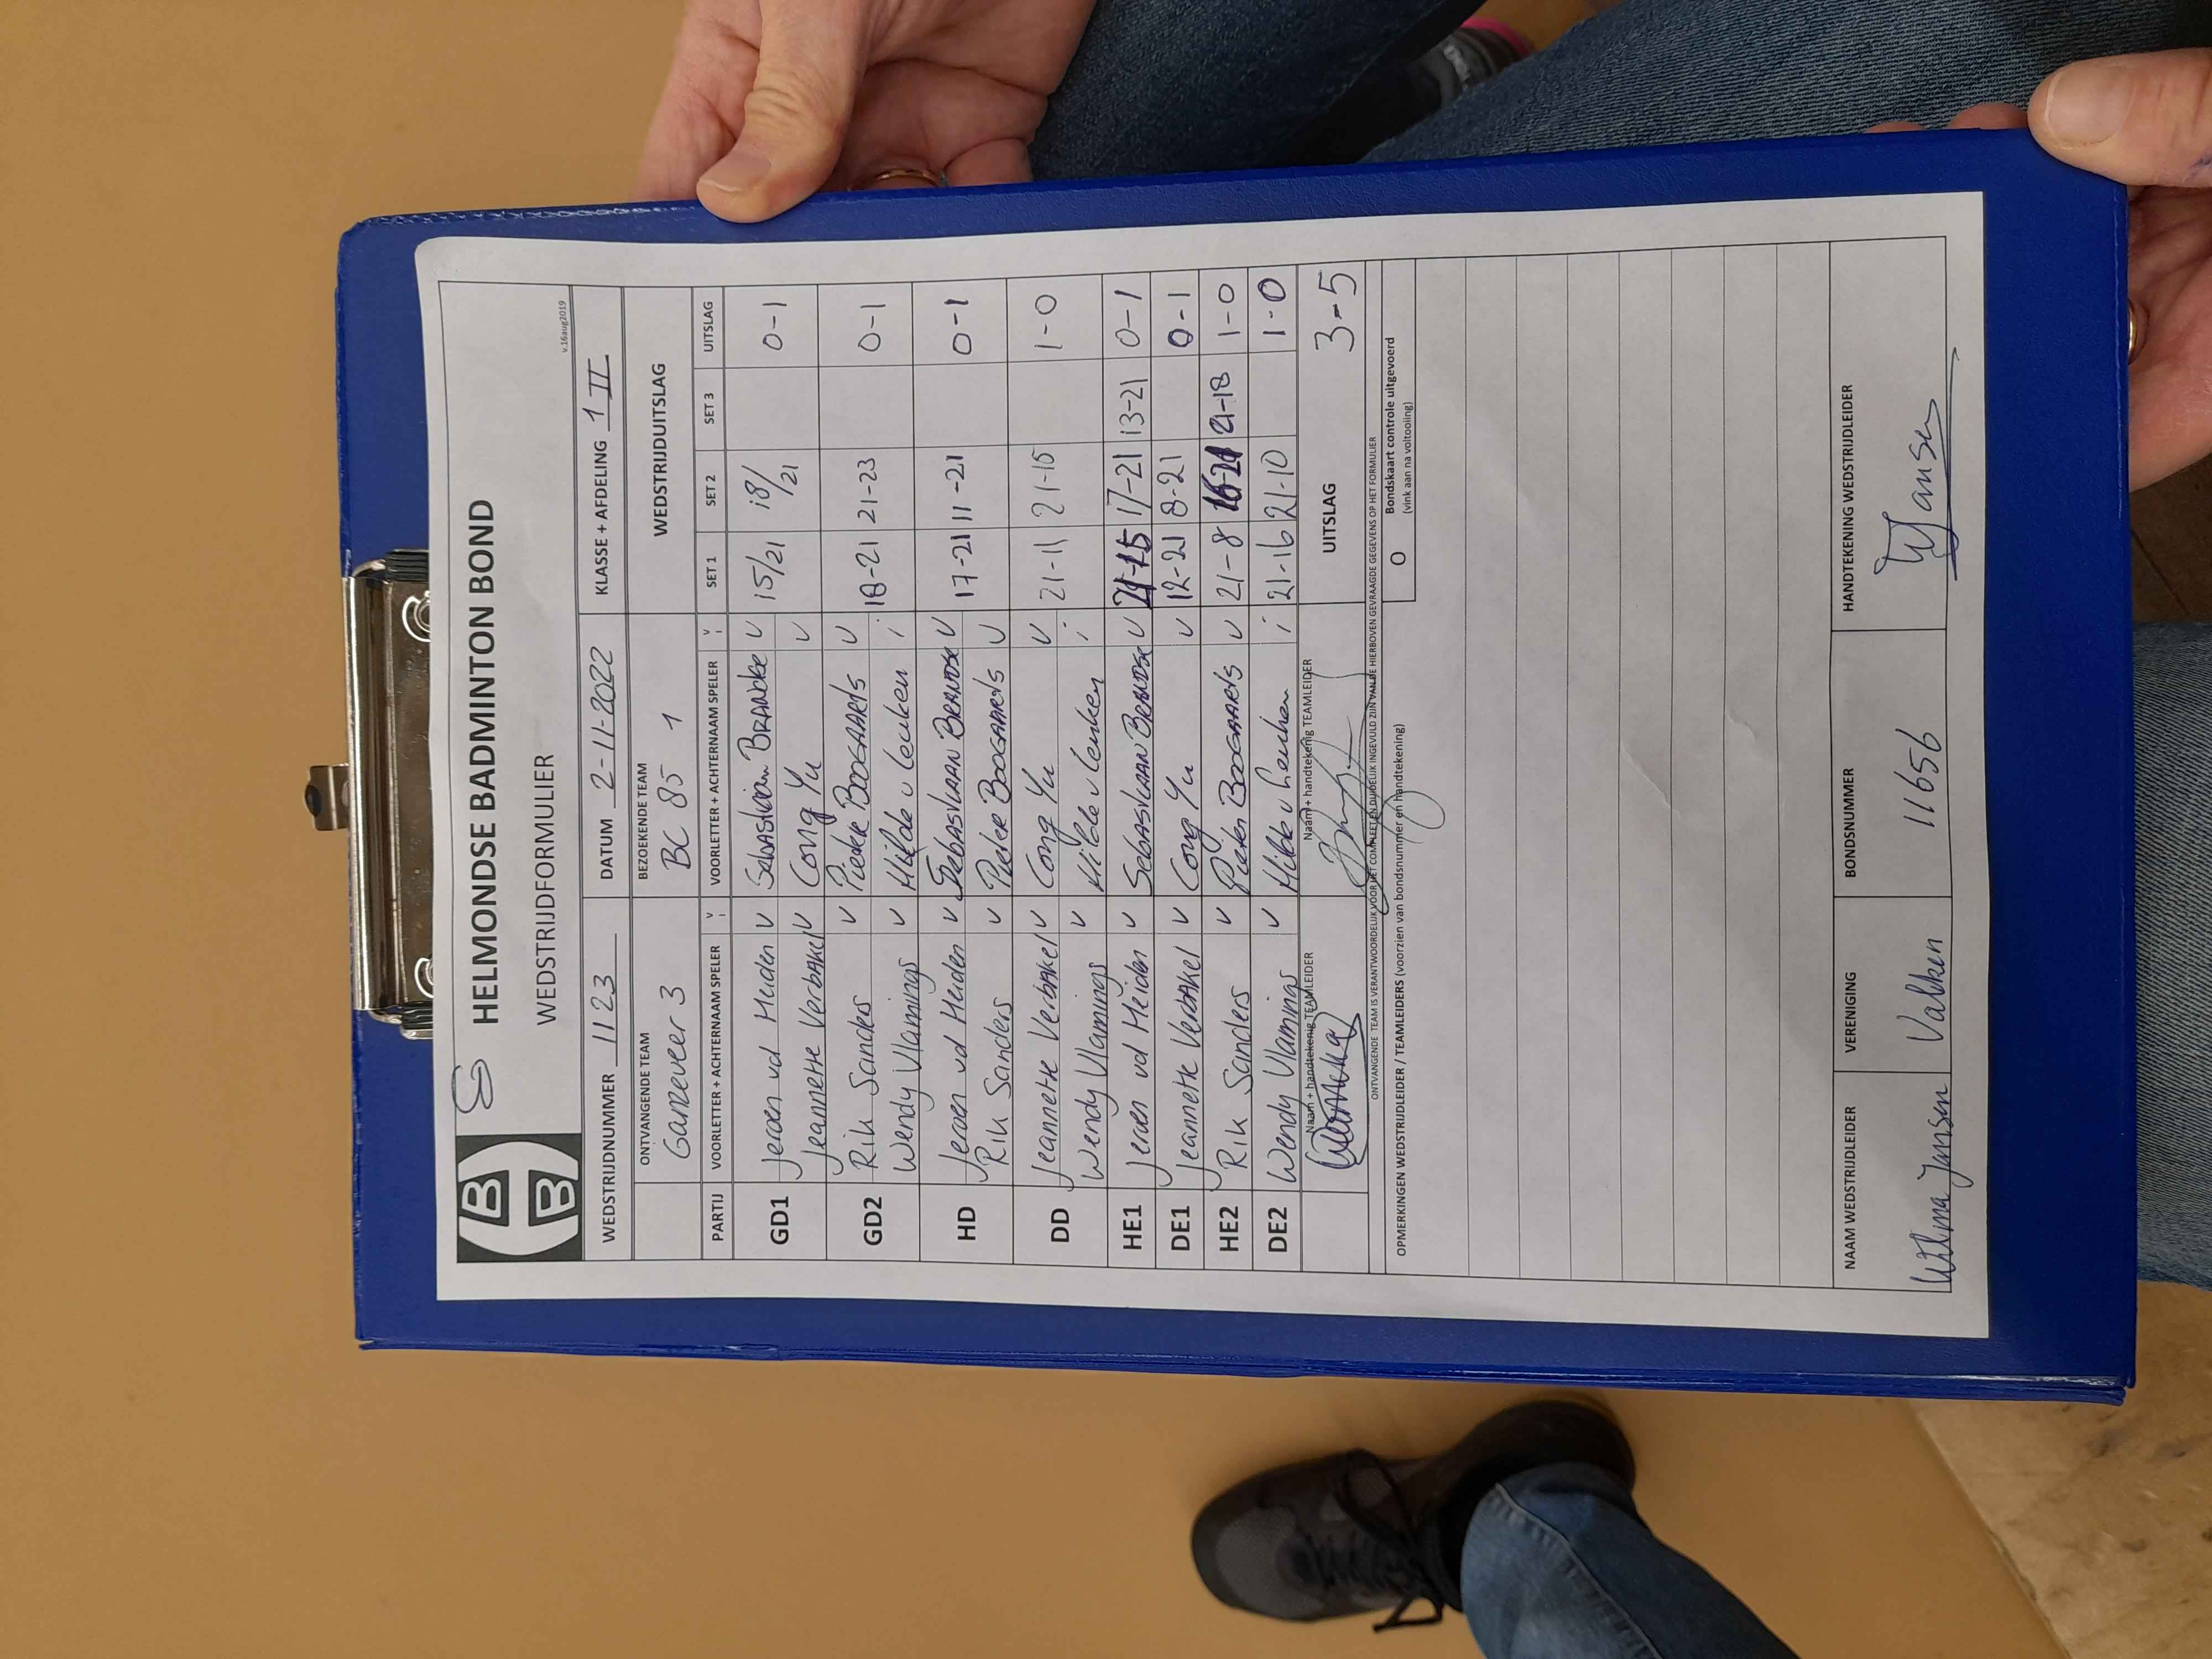 HELMONDSE BADMINTON BOND
WEDSTRIJDFORMULIER
v.16aug2019
BB
WEDSTRIJDNUMMER 1123 DATUM 2-11-2022 KLASSE + AFDELING 1 II
ONTVANGENDE TEAM BEZOEKENDE TEAM WEDSTRIJDUITSLAG
Ganzeveer 3 BC 85 1
PARTIJ VOORLETTER + ACHTERNAAM SPELER V VOORLETTER + ACHTERNAAM SPELER V SET 1 SET 2 SET 3 UITSLAG
GD1 Jeroen vd Heiden v Sebastiaan v 15/21 18/21 0-1
Jeannette Verbakel v Cong Yu v
GD2 Rik Sanders v Pieter Boogaarts v 18-21 21-23 0-1
Wendy Vlamings v Hilde v Leuken i
HD Jeroen vd Heiden v Sebastiaan v 17-21 11-21 0-1
Rik Sanders v Pieter Boogaarts v
DD Jeannette Verbakel v Cong Yu v 21-11 21-15 1-0
Wendy Vlamings v Hilde v Leuken i
HE1 Jeroen vd Heiden v Sebastiaan v 21-15 17-21 13-21 0-1
DE1 Jeannette Verbakel v Cong Yu v 12-21 8-21 0-1
HE2 Rik Sanders v Pieter Boogaarts v 21-8 16-21 21-18 1-0
DE2 Wendy Vlamings v Hilde v Leuken i 21-16 21-10 1-0
Naam + handtekenig TEAMLEIDER Naam + handtekenig TEAMLEIDER UITSLAG 3-5
ONTVANGENDE TEAM IS VERANTWOORDELIJK VOOR HET COMPLEET EN DUIDELIJK INGEVULD ZIJN VAN DE HIERBOVEN GEVRAAGDE GEGEVENS OP HET FORMULIER
OPMERKINGEN WEDSTRIJDLEIDER / TEAMLEIDERS (voorzien van bondsnummer en handtekening) O Bondskaart controle uitgevoerd
(vink aan na voltooiing)
NAAM WEDSTRIJDLEIDER VERENIGING BONDSNUMMER HANDTEKENING WEDSTRIJDLEIDER
Wilma Jansen Valken 11656 WJansen